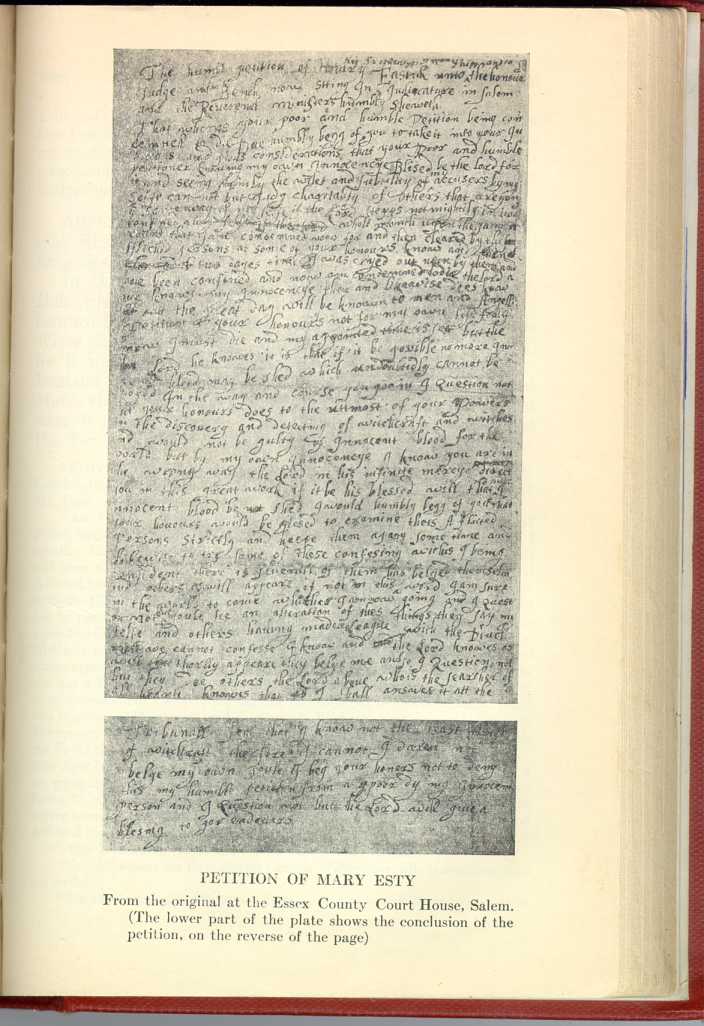 The humbl petition of Mary Eastick unto the honours
Judge and Bench now siting In Judicature in Salem
and the Reverend ministers humbly sheweth
That wheras your poor and humble Petition being con
demned to die Doe humbly begg of you to take it into your Ju
and pious considerations that your Poor and humble
petitioner knowing my own Innocencye Blised be the lord for
it and seeing plainly the wiles and subtility of my accusers by my
selfe can not but Judg charitably of others that are going
my selfe if the Lord steps not mightily in
I was confined a whole month upon the same
condemned now for and then cleared by the
afflicted persons as some of your honours know and
two dayes time I was cryed out upon by them and
have been confined and now am condemned to die the lord
my Innocencye then and likewise does now
att the great day will be known to men and Angells
petition to your honours not for my own life for I
know I must die and my appointed time is sett but the
Lord he knowes it is that if it be possible no more Inn
blood may be shed which undoubtidly cannot be
In the way and course you goe in I question not
but your honours does to the uttmost of your Powers
in the discovery and detecting of witchcraft and witches
and would not be gulty of Innocent blood for the
world but by my own Innocencye I know you are in
the wrong way the Lord in his infinite mercye direct
you in this great work if it be his blessed will that
Innocent blood be not shed I would humbly begg of you that
your honours would be plesed to examine theis Aflicted
Persons strictly and keepe them apart some time and
likewise to try some of these confesing wichis I being
confident there is severall of them has belyed themselves
and others as will appeare if not in this wor'd I am sure
in the world to come whither I am now going and I Question
not youle see an alteration of thes things they say my
selfe and others having made a League with the Divel
we cannot confesse I know and the Lord knowes as
will shortly appeare they belye me and so I Question not
but they doe others the Lord above who is the searcher of
all hearts knowes that as I shall answer it att the
Tribunall seat that I know not the least thinge
of witchcraft therfore I cannot I dare not
belye my own soule I beg your honers not to deny
this my humble petition from a poor dy ing Innocent
person and I Question not but the Lord will give a
blesing to yor endevers
PETITION OF MARY ESTY
From the original at the Essex County Court House, Salem.
(The lower part of the plate shows the conclusion of the
petition, on the reverse of the page)